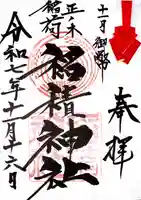 奉拝
十一月 御幣
正ノ木
稲荷
稲積神社
令和七年十一月十六日